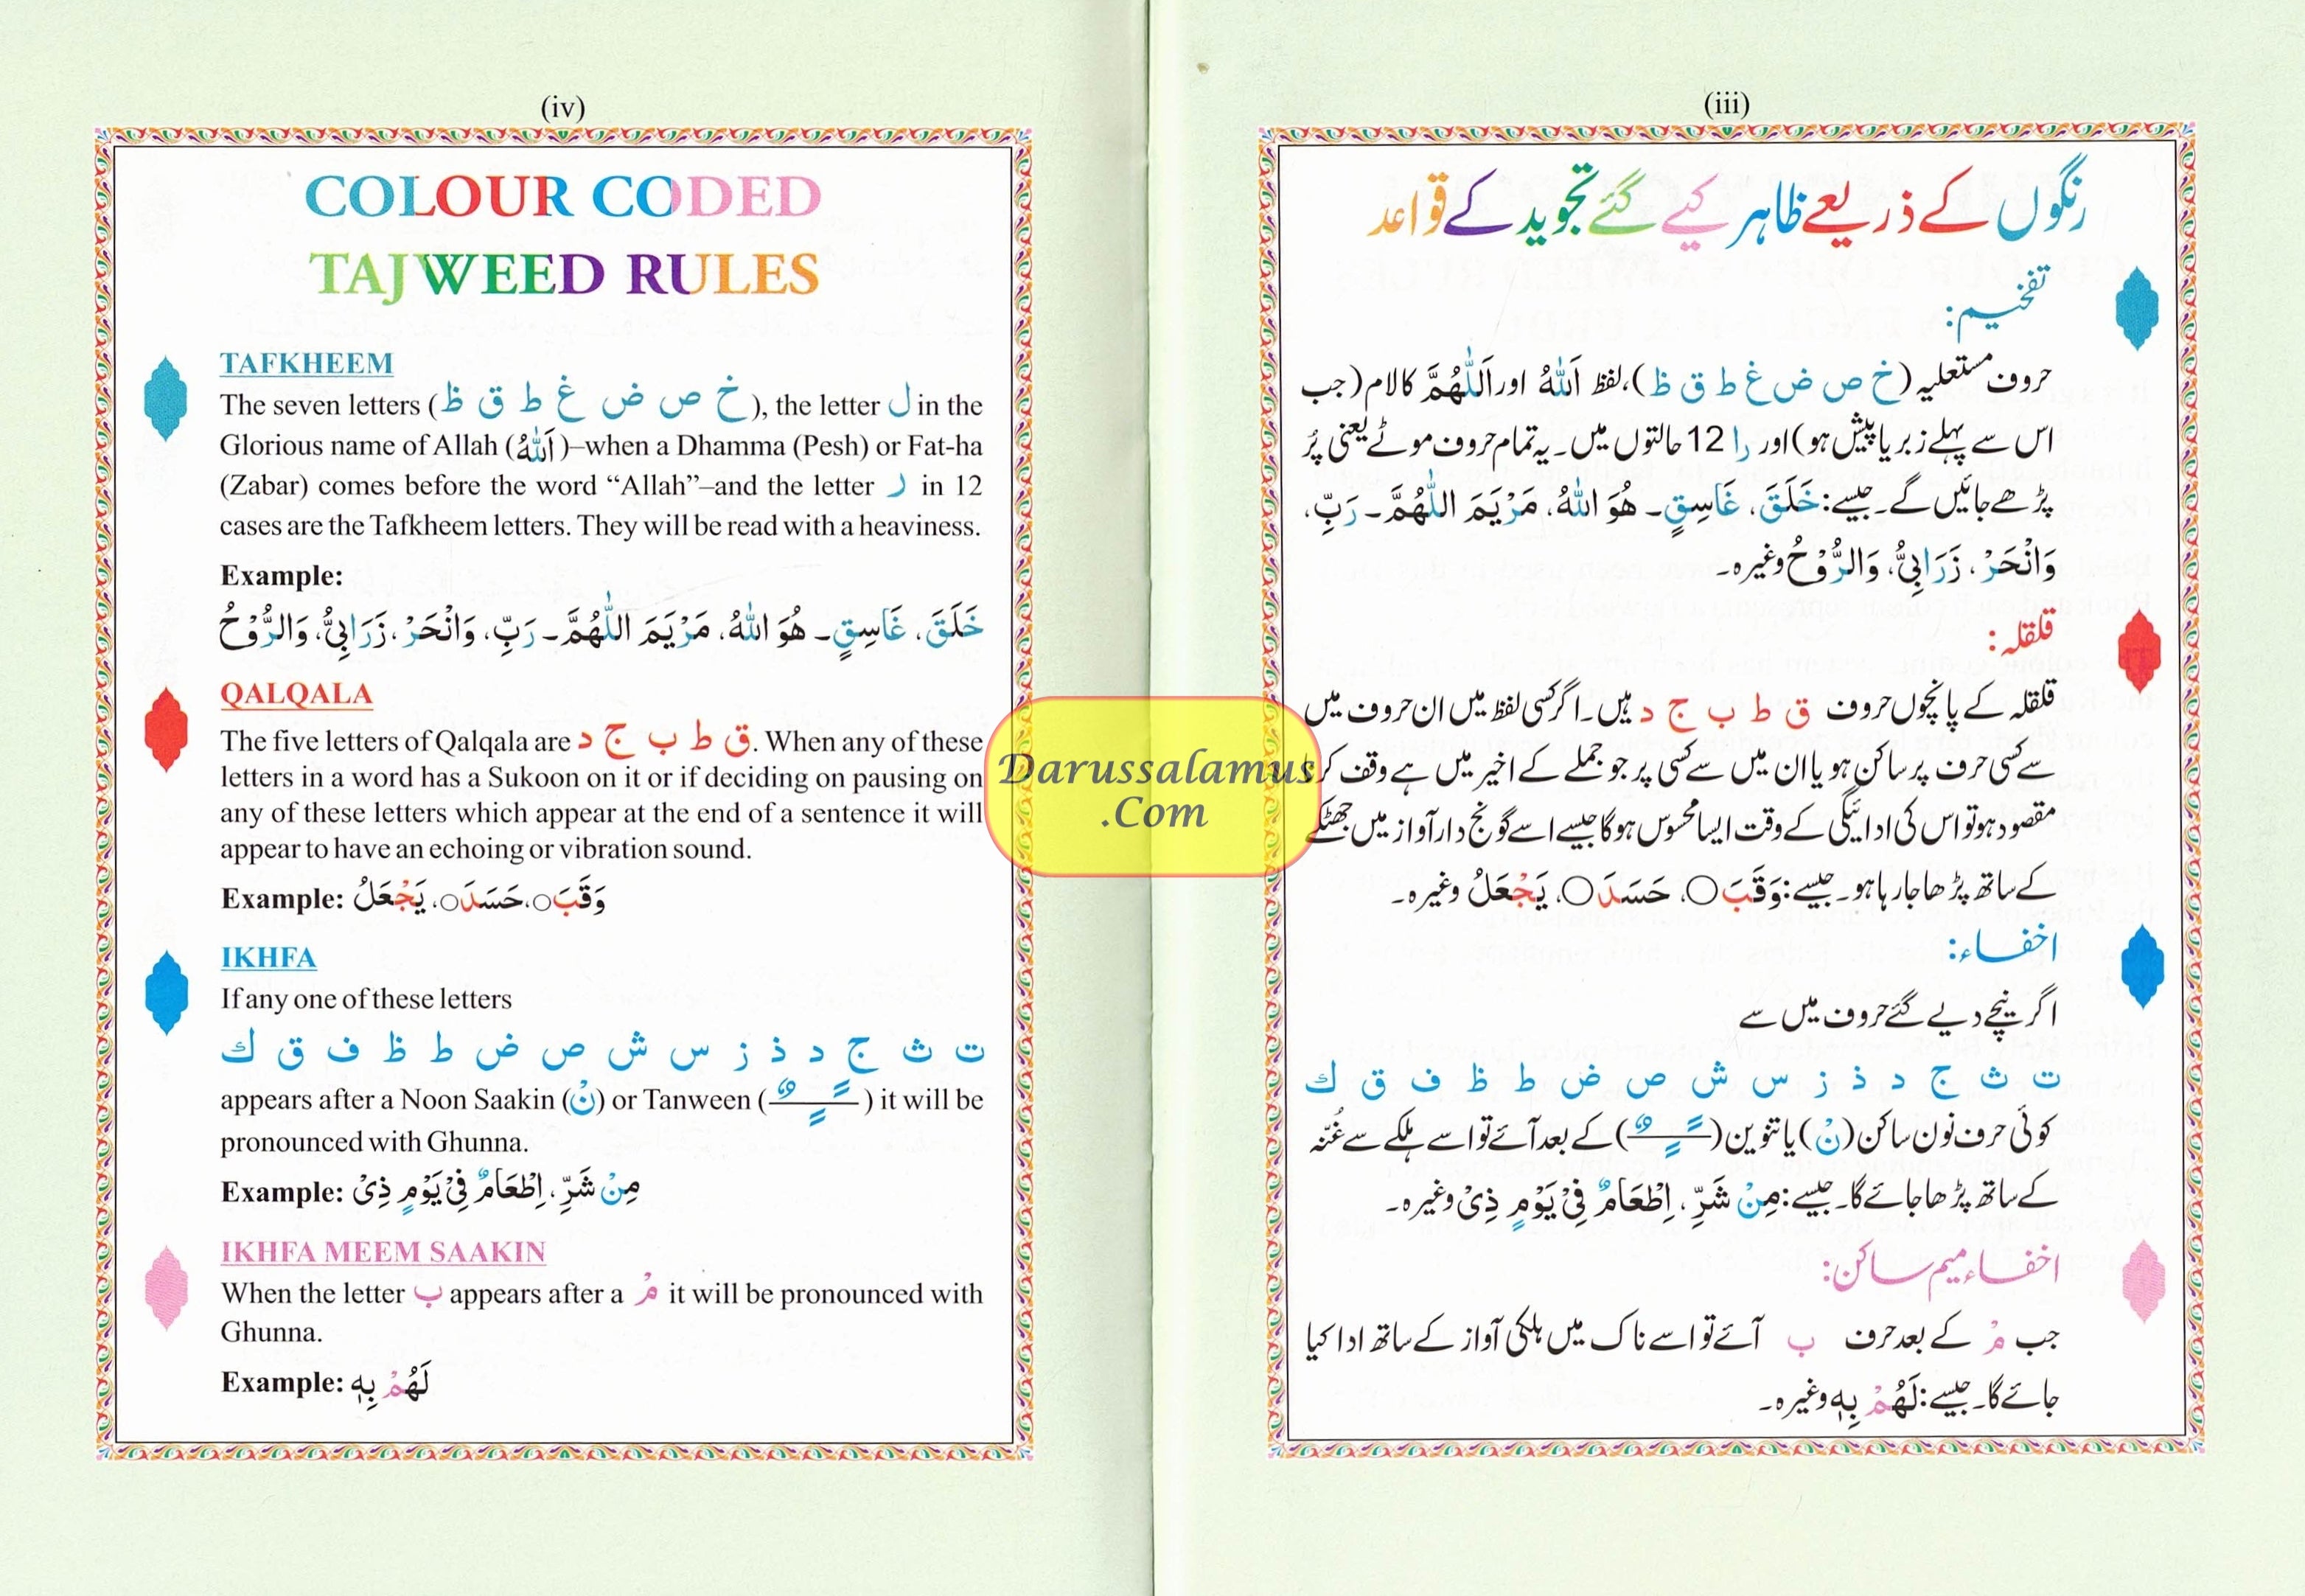 (iv)
COLOUR CODED
TAJWEED RULES
TAFKHEEM
The seven letters (خ ص ض غ ط ق ظ), the letter ل in the
Glorious name of Allah (اَللّٰهُ)–when a Dhamma (Pesh) or Fat-ha
(Zabar) comes before the word “Allah”–and the letter ر in 12
cases are the Tafkheem letters. They will be read with a heaviness.
Example:
خَلَقَ، غَاسِقٍ۔ هُوَ اللّٰهُ، مَرْيَمَ اللّٰهُمَّ۔ رَبِّ، وَانْحَرْ، زَرَابِيُّ، وَالرُّوْحُ
QALQALA
The five letters of Qalqala are ق ط ب ج د. When any of these
letters in a word has a Sukoon on it or if deciding on pausing on
any of these letters which appear at the end of a sentence it will
appear to have an echoing or vibration sound.
Example: وَقَبَ○، حَسَدَ○، يَجْعَلُ
IKHFA
If any one of these letters
ت ث ج د ذ ز س ش ص ض ط ظ ف ق ك
appears after a Noon Saakin (نْ) or Tanween (ـًـٍـٌ) it will be
pronounced with Ghunna.
Example: مِنْ شَرِّ، اِطْعَامٌ فِيْ يَوْمٍ ذِيْ
IKHFA MEEM SAAKIN
When the letter ب appears after a مْ it will be pronounced with
Ghunna.
Example: لَهُمْ بِهٖ
(iii)
رنگوں کے ذریعے ظاہر کیے گئے تجوید کے قواعد
تفخیم:
حروف مستعلیہ (خ ص ض غ ط ق ظ)، لفظ اَللّٰهُ اور اَللّٰهُمَّ کا لام (جب
اس سے پہلے زبر یا پیش ہو) اور را 12 حالتوں میں۔ یہ تمام حروف موٹے یعنی پُر
پڑھے جائیں گے۔ جیسے: خَلَقَ، غَاسِقٍ۔ هُوَ اللّٰهُ، مَرْيَمَ اللّٰهُمَّ۔ رَبِّ،
وَانْحَرْ، زَرَابِيُّ، وَالرُّوْحُ وغیرہ۔
قلقلہ:
قلقلہ کے پانچوں حروف ق ط ب ج د ہیں۔ اگر کسی لفظ میں ان حروف میں
سے کسی حرف پر ساکن ہو یا ان میں سے کسی پر جو جملے کے اخیر میں ہے وقف کرنا
مقصود ہو تو اس کی ادائیگی کے وقت ایسا محسوس ہوگا جیسے اسے گونج دار آواز میں جھٹکے
کے ساتھ پڑھا جا رہا ہو۔ جیسے: وَقَبَ○، حَسَدَ○، يَجْعَلُ وغیرہ۔
اخفاء:
اگر نیچے دیے گئے حروف میں سے
ت ث ج د ذ ز س ش ص ض ط ظ ف ق ك
کوئی حرف نون ساکن (نْ) یا تنوین (ـًـٍـٌ) کے بعد آئے تو اسے ہلکے سے غُنّہ
کے ساتھ پڑھا جائے گا۔ جیسے: مِنْ شَرِّ، اِطْعَامٌ فِيْ يَوْمٍ ذِيْ وغیرہ۔
اخفاء میم ساکن:
جب مْ کے بعد حرف ب آئے تو اسے ناک میں ہلکی آواز کے ساتھ ادا کیا
جائے گا۔ جیسے: لَهُمْ بِهٖ وغیرہ۔
Darussalamus
.Com